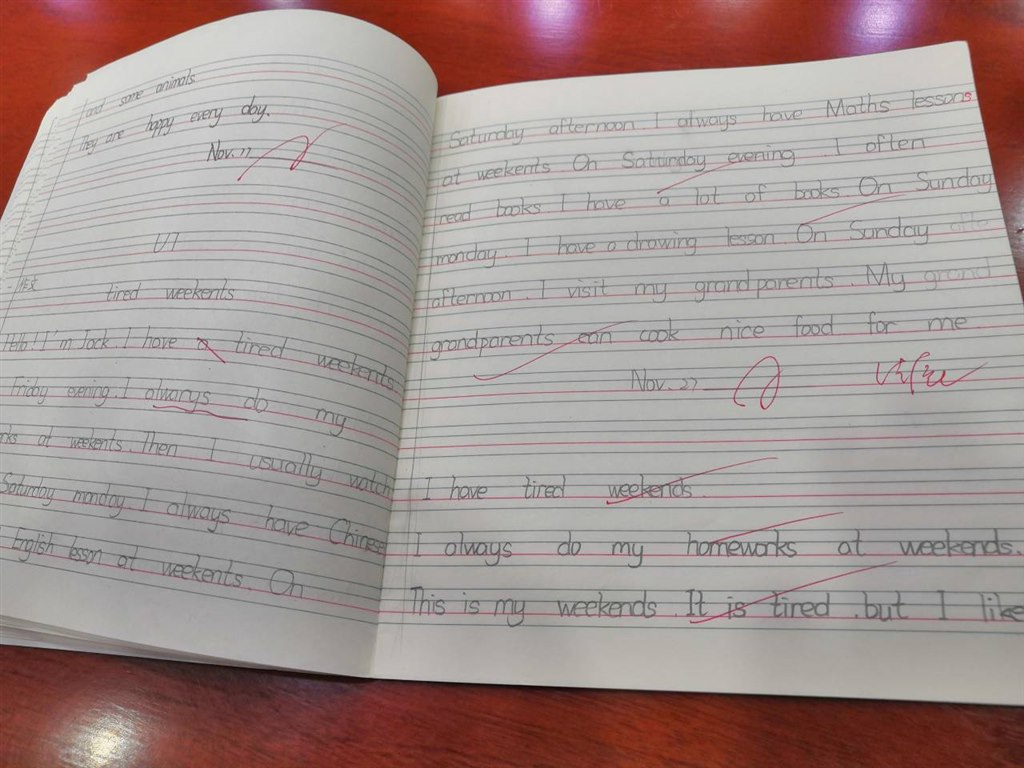 and some animals.
They are happy every day.
Nov. 22
U7
tired weekents
Hello! I'm Jack. I have a tired weekents.
Friday evening. I alwarys do my
at weekents. Then I usually watch
Saturday monday. I always have Chinese
English lesson at weekents. On
Saturday afternoon. I always have Maths lessons
at weekents. On Saturday evening. I often
read books. I have a lot of books. On Sunday
monday. I have a drawing lesson. On Sunday
afternoon. I visit my grandparents. My grand
grandparents can cook nice food for me.
Nov. 27
I have tired weekends.
I always do my homeworks at weekends.
This is my weekends. It is tired. but I like